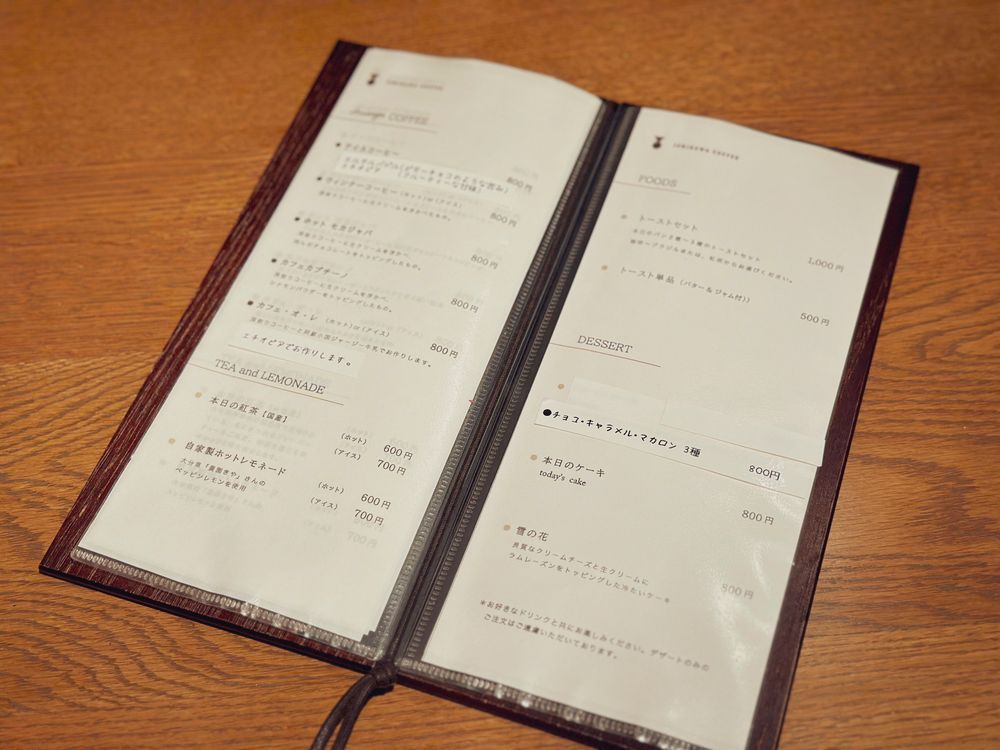 COFFEE
●アイスコーヒー
800円
●ウィンナーコーヒー(ホット)or(アイス)
800円
●ホット モカジャバ
800円
●カフェカプチーノ
シナモンパウダーをトッピングしたもの。
800円
●カフェ・オ・レ (ホット)or(アイス)
800円
エチオピアでお作りします。
TEA and LEMONADE
本日の紅茶【国産】
(ホット) 600円
(アイス) 700円
自家製ホットレモネード
大分県「農園きや」さんの
ベッピンレモンを使用
(ホット) 600円
(アイス) 700円
FOODS
トーストセット
1,000円
トースト単品 (バター&ジャム付)
500円
DESSERT
●チョコ・キャラメル・マカロン 3種
800円
本日のケーキ
today's cake
800円
雪の花
良質なクリームチーズと生クリームに
ラムレーズンをトッピングした冷たいケーキ
800円
*お好きなドリンクと共にお楽しみください。デザートのみの
ご注文はご遠慮いただいております。